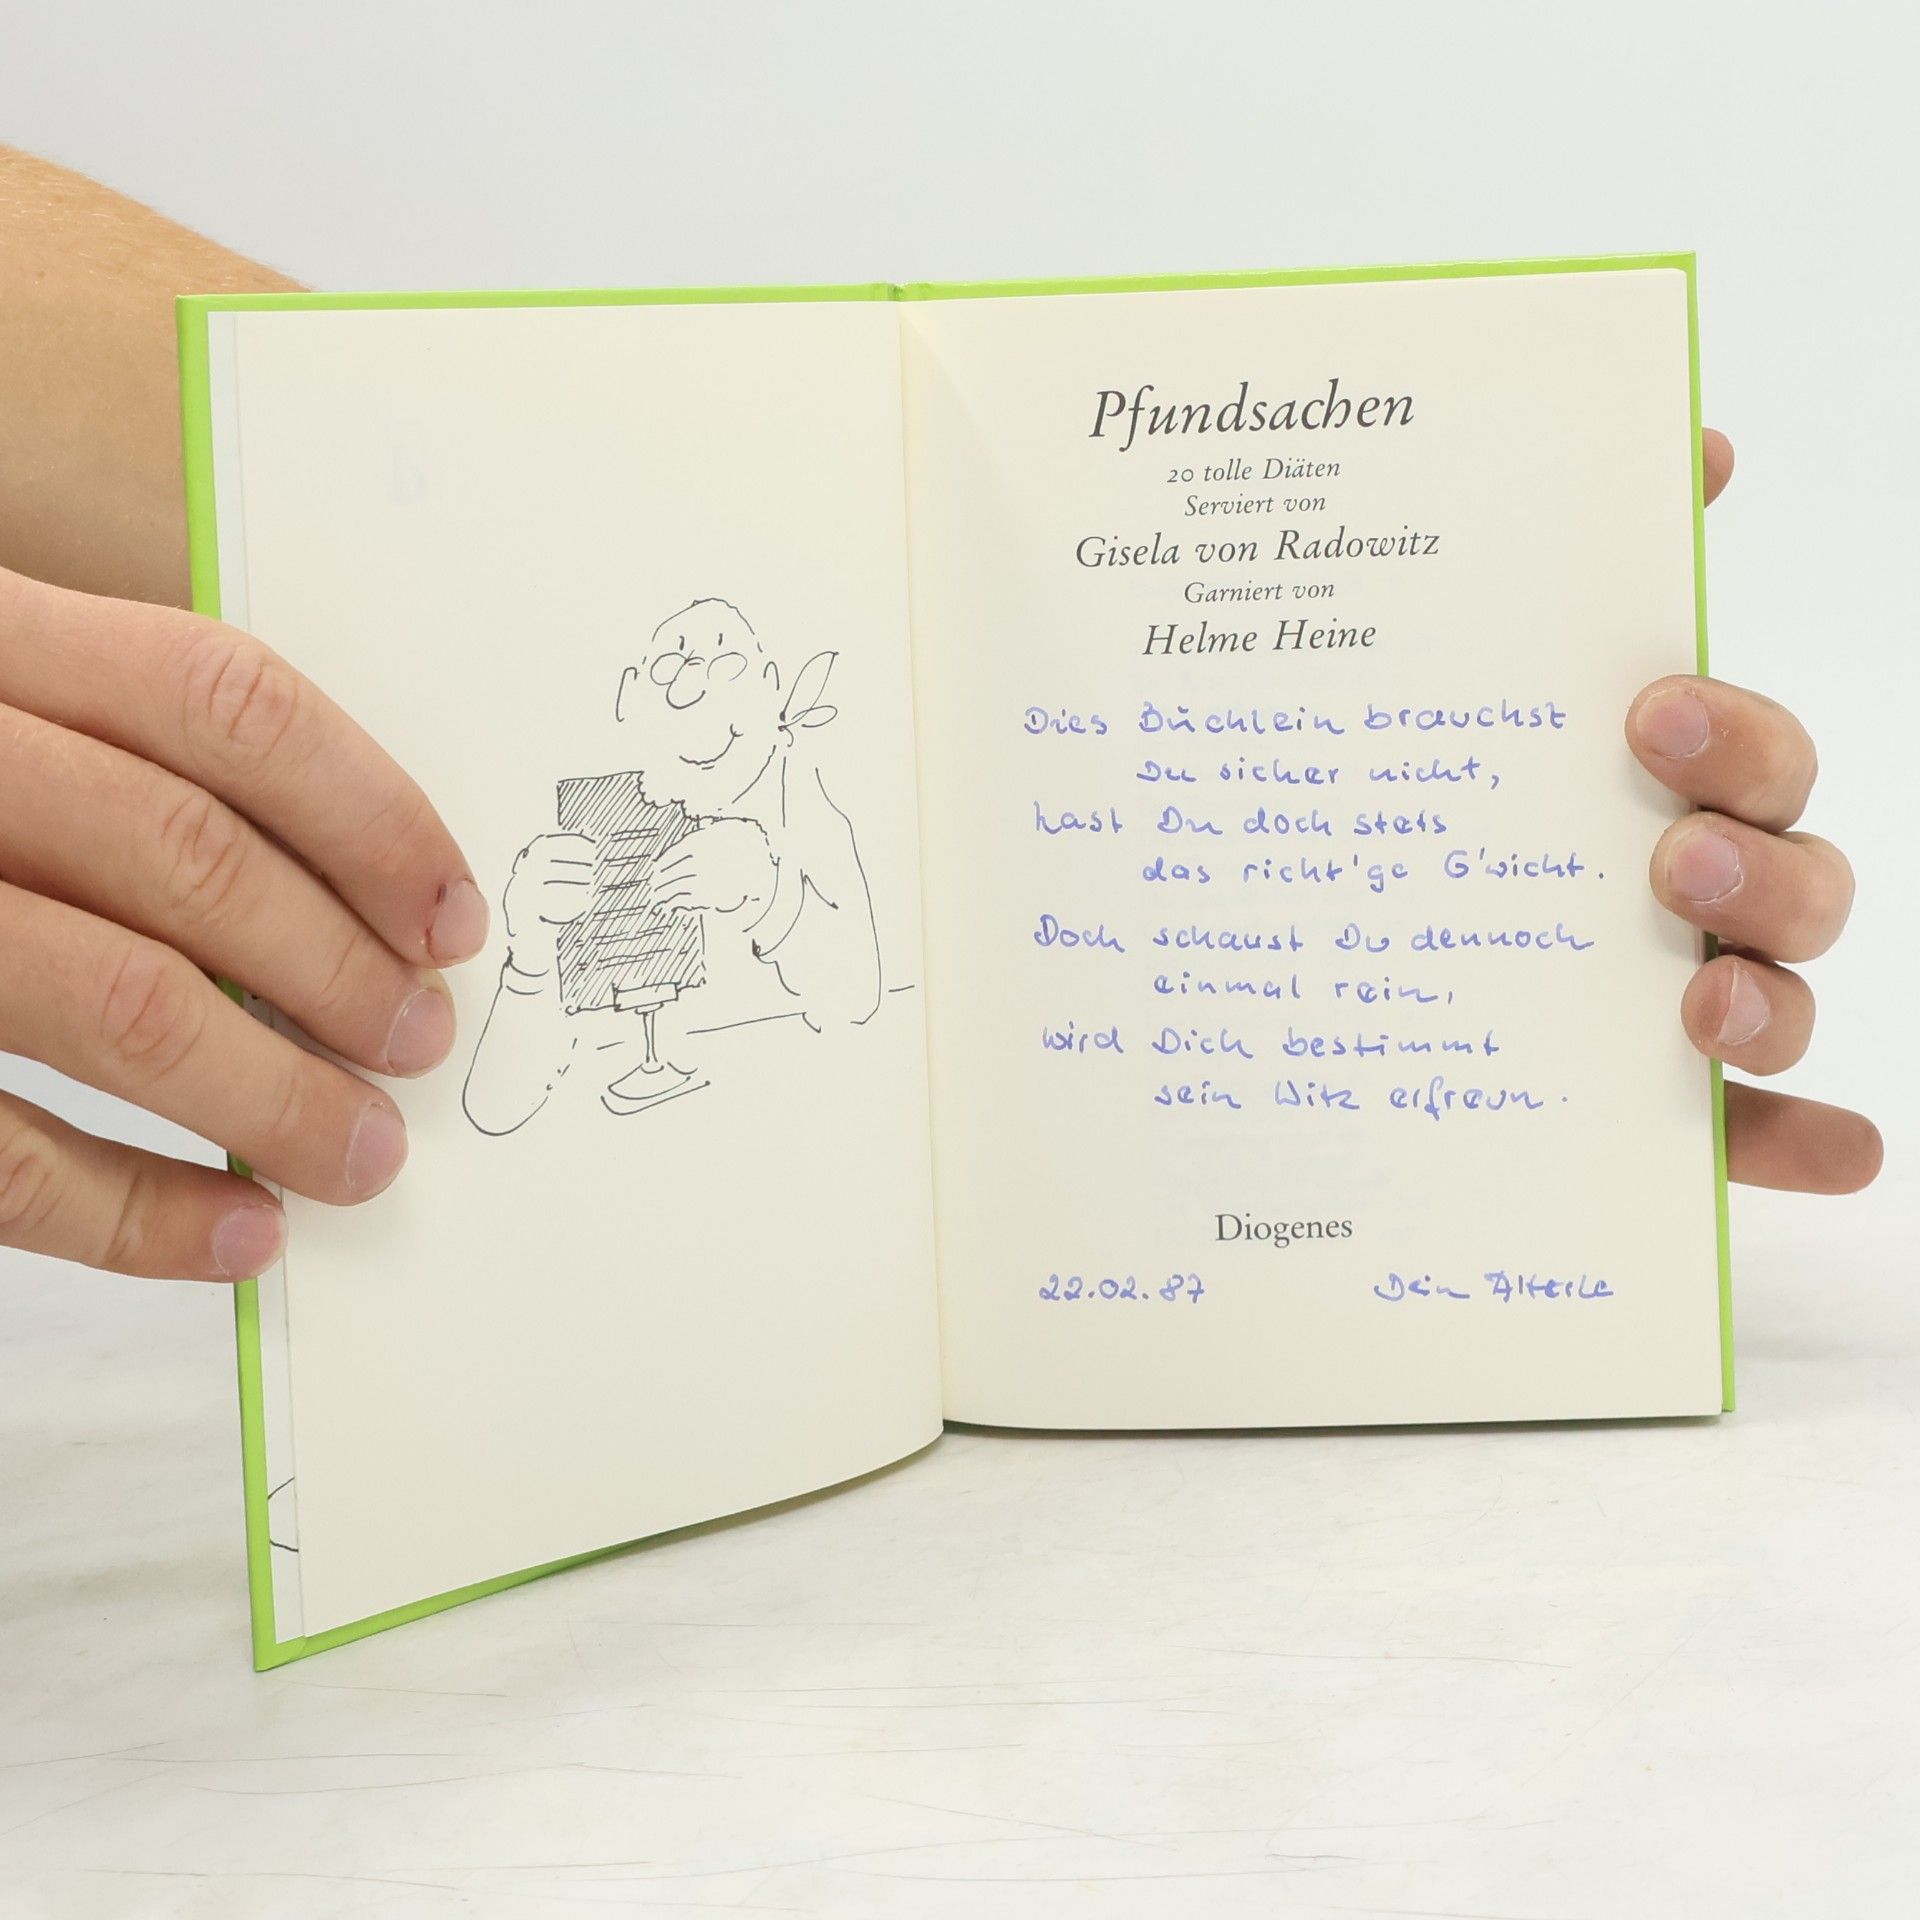 Pfundsachen
20 tolle Diäten
Serviert von
Gisela von Radowitz
Garniert von
Helme Heine
Dies Büchlein brauchst
Du sicher nicht,
hast Du doch stets
das richt'ge G'wicht.
Doch schaust Du dennoch
einmal rein,
wird Dich bestimmt
sein Witz erfreun.
Diogenes
22.02.87 Dein Alterle